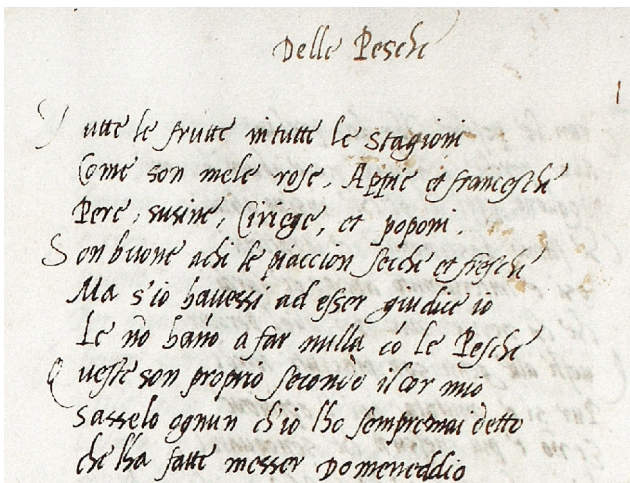 Delle Pesche
Tutte le frutte in tutte le stagioni
Come son mele rose, Appie et francesche
Pere, susine, Ciriege, et poponi.
Son buone a chi le piaccion secche et fresche
Ma s'io havessi ad esser giudice io
Le nō hāno a far nulla cō le Pesche
Queste son proprio secondo il cor mio
Sasselo ognun ch'io l'ho sempre mai detto
che l'ha fatte messer Domeneddio